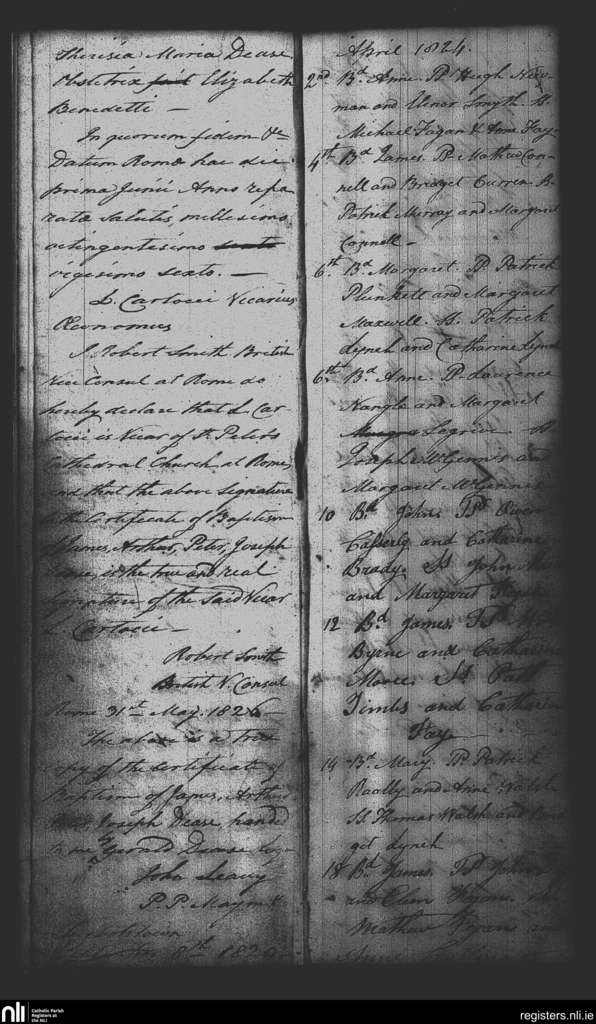 Theresia Maria Dease
Obstetrix Elizabeth
Benedetti —
In quorum fidem &c
Datum Romæ hac die
prima Junii Anno repa
ratæ Salutis, millesimo
octingentesimo
vigesimo sexto. —
L. Cartocci Vicarius
Œconomus
I Robert Smith British
Vice Consul at Rome do
hereby declare that L Car
tocci is Vicar of St. Peter's
Cathedral Church at Rome,
and that the above Signature
to the Certificate of Baptism
James, Arthur, Peter, Joseph
Dease, is the true and real
Signature of the Said Vicar
L Cartocci —
Robert Smith
British V. Consul
Rome 31st May. 1826 —
The above is a true
copy of the certificate of
Baptism of James, Arthur
Joseph Dease, handed
to me by Gerald Dease
John Leavy
P. P.
8th 1829
April 1824.
2nd Bd. Anne. Pp Hugh New-
man and Elenor Smyth. Ss.
Michael Fagan & Anne Fay —
4th Bd James. Pp Mathew Con-
nell and Bridget Curren Ss.
Patrick Murray and Margaret
Connell —
6th. Bd. Margaret. Pp Patrick
Plunkett and Margaret
Maxwell. Ss. Patrick
Lynch and Catharine Lynch
6th Bd. Anne. Pp. Laurence
Nangle and Margaret
Ss
Joseph McGennis and
Margaret McGennis
10 Bd. John. Pp Owen
Casserly and Catharine
Brady. Ss John
and Margaret
12 Bd. James. Pp
Byrne and Catharine
Ss Patt
Timbs and Catharine
Fay —
14 Bd. Mary. Pp Patrick
Reilly and Anne Walsh
Ss. Thomas Walsh and Brid
get Lynch
18 Bd James. Pp John
and Ellen
Mathew
nli
Catholic Parish
Registers at
the NLI
registers.nli.ie